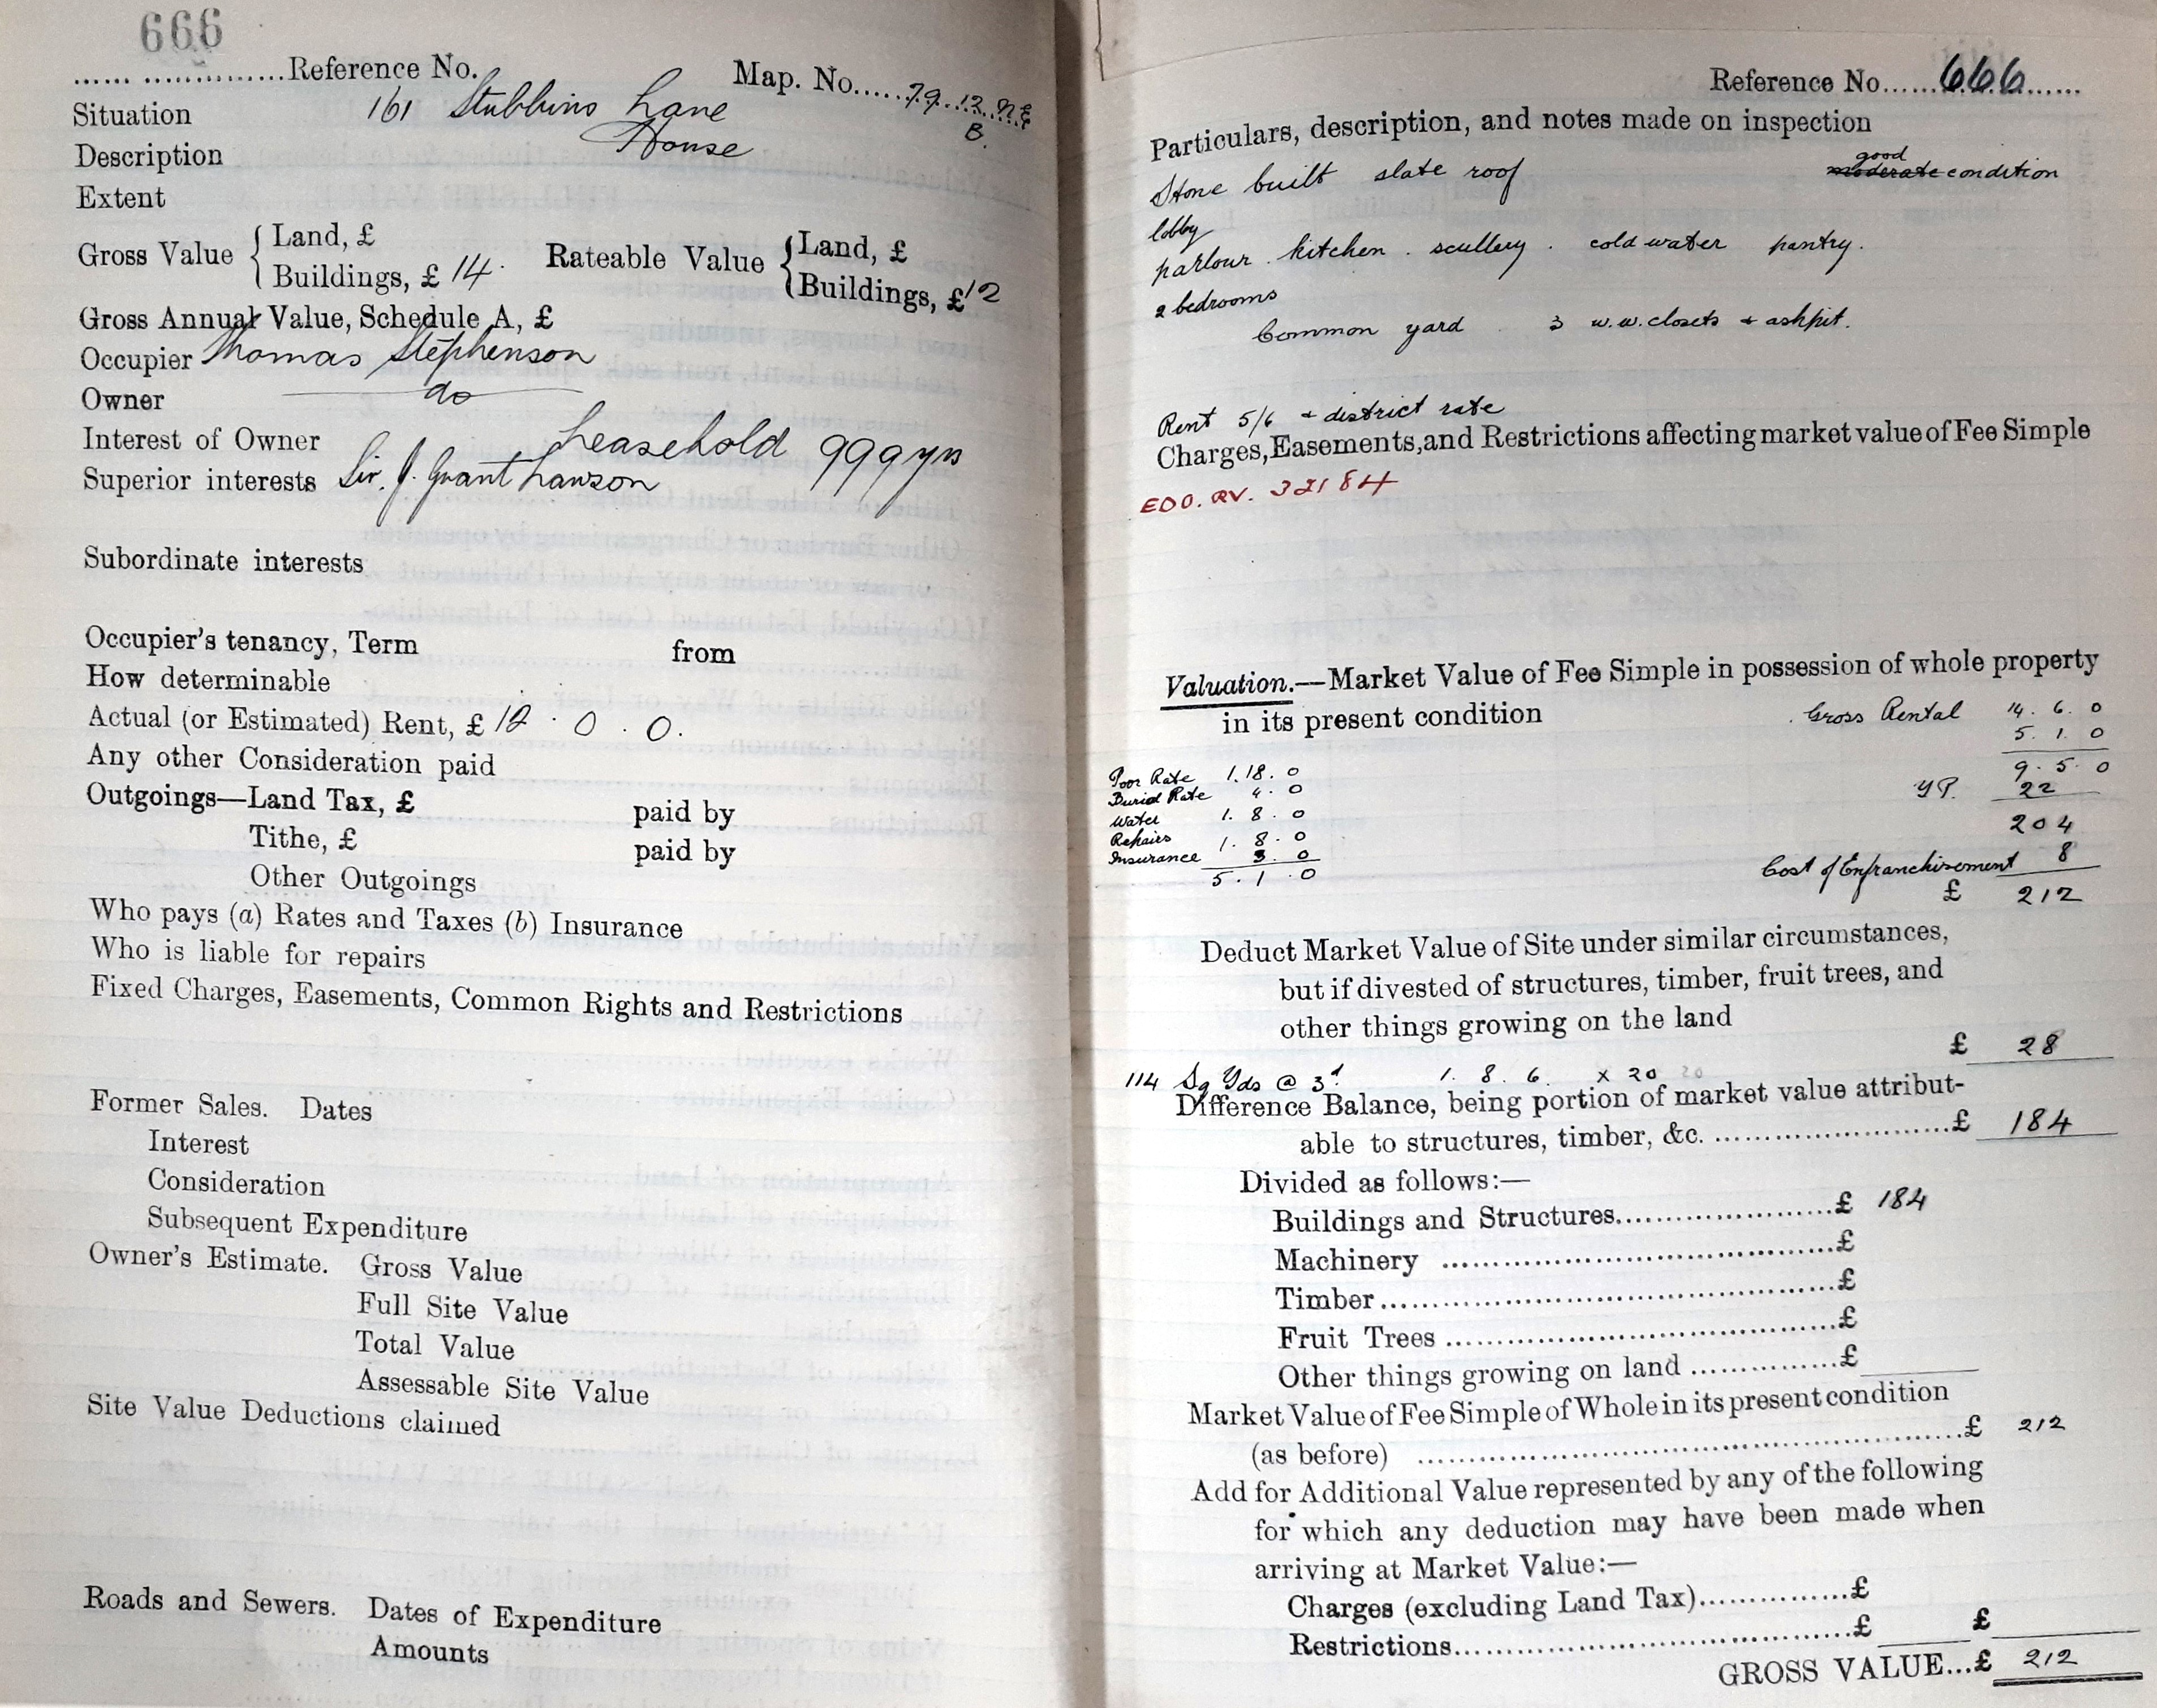 666
...... ..............Reference No. Map. No.....79.12.NE
B.
Situation 161 Stubbins Lane
Description House
Extent
Gross Value { Land, £ Rateable Value { Land, £
Buildings, £ 14. Buildings, £12
Gross Annual Value, Schedule A, £
Occupier Thomas Stephenson
Owner do
Interest of Owner Leasehold 999 yrs
Superior interests Sir. J. Grant Lawson
Subordinate interests
Occupier's tenancy, Term from
How determinable
Actual (or Estimated) Rent, £ 12 . 0 . 0.
Any other Consideration paid
Outgoings—Land Tax, £ paid by
Tithe, £ paid by
Other Outgoings
Who pays (a) Rates and Taxes (b) Insurance
Who is liable for repairs
Fixed Charges, Easements, Common Rights and Restrictions
Former Sales. Dates
Interest
Consideration
Subsequent Expenditure
Owner's Estimate. Gross Value
Full Site Value
Total Value
Assessable Site Value
Site Value Deductions claimed
Roads and Sewers. Dates of Expenditure
Amounts
Reference No......666......
Particulars, description, and notes made on inspection
good
Stone built slate roof moderate condition
lobby
parlour . kitchen . scullery . cold water pantry.
2 bedrooms
Common yard 3 w.w.closets + ashpit.
Rent 5/6 + district rate
Charges, Easements, and Restrictions affecting market value of Fee Simple
EDO. RV. 32184
Valuation.—Market Value of Fee Simple in possession of whole property
in its present condition Gross Rental 14. 6. 0
5. 1. 0
Poor Rate 1.18. 0 9. 5. 0
Burial Rate 4. 0 YP. 22
Water 1. 8. 0 204
Repairs 1. 8. 0
Insurance 3. 0 Cost of Enfranchisement 8
5. 1. 0 £ 212
Deduct Market Value of Site under similar circumstances,
but if divested of structures, timber, fruit trees, and
other things growing on the land £ 28
114 Sq Yds @ 3d 1. 8. 6. x 20
Difference Balance, being portion of market value attribut-
able to structures, timber, &c. ...........................£ 184
Divided as follows:—
Buildings and Structures.........................£ 184
Machinery .............................................£
Timber....................................................£
Fruit Trees .............................................£
Other things growing on land ................£
Market Value of Fee Simple of Whole in its present condition
(as before) .........................................................£ 212
Add for Additional Value represented by any of the following
for which any deduction may have been made when
arriving at Market Value:—
Charges (excluding Land Tax)...............£
Restrictions...........................................£ £
GROSS VALUE...£ 212